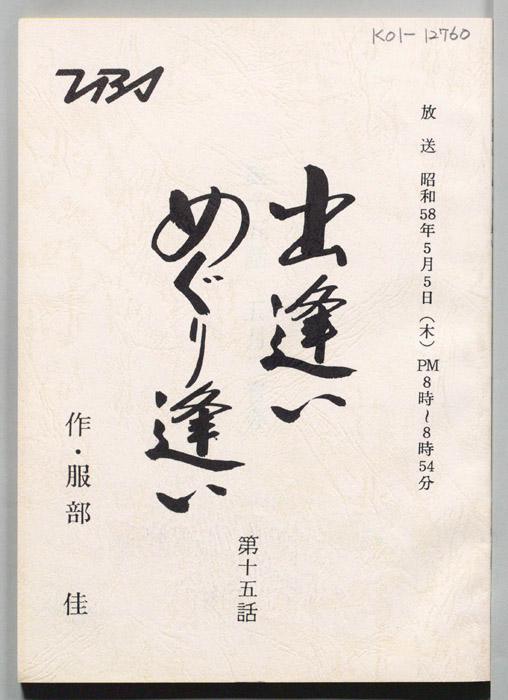 K01-12760
TBS
放送 昭和58年5月5日(木)PM8時~8時54分
出逢い
めぐり逢い
第十五話
作・服部 佳